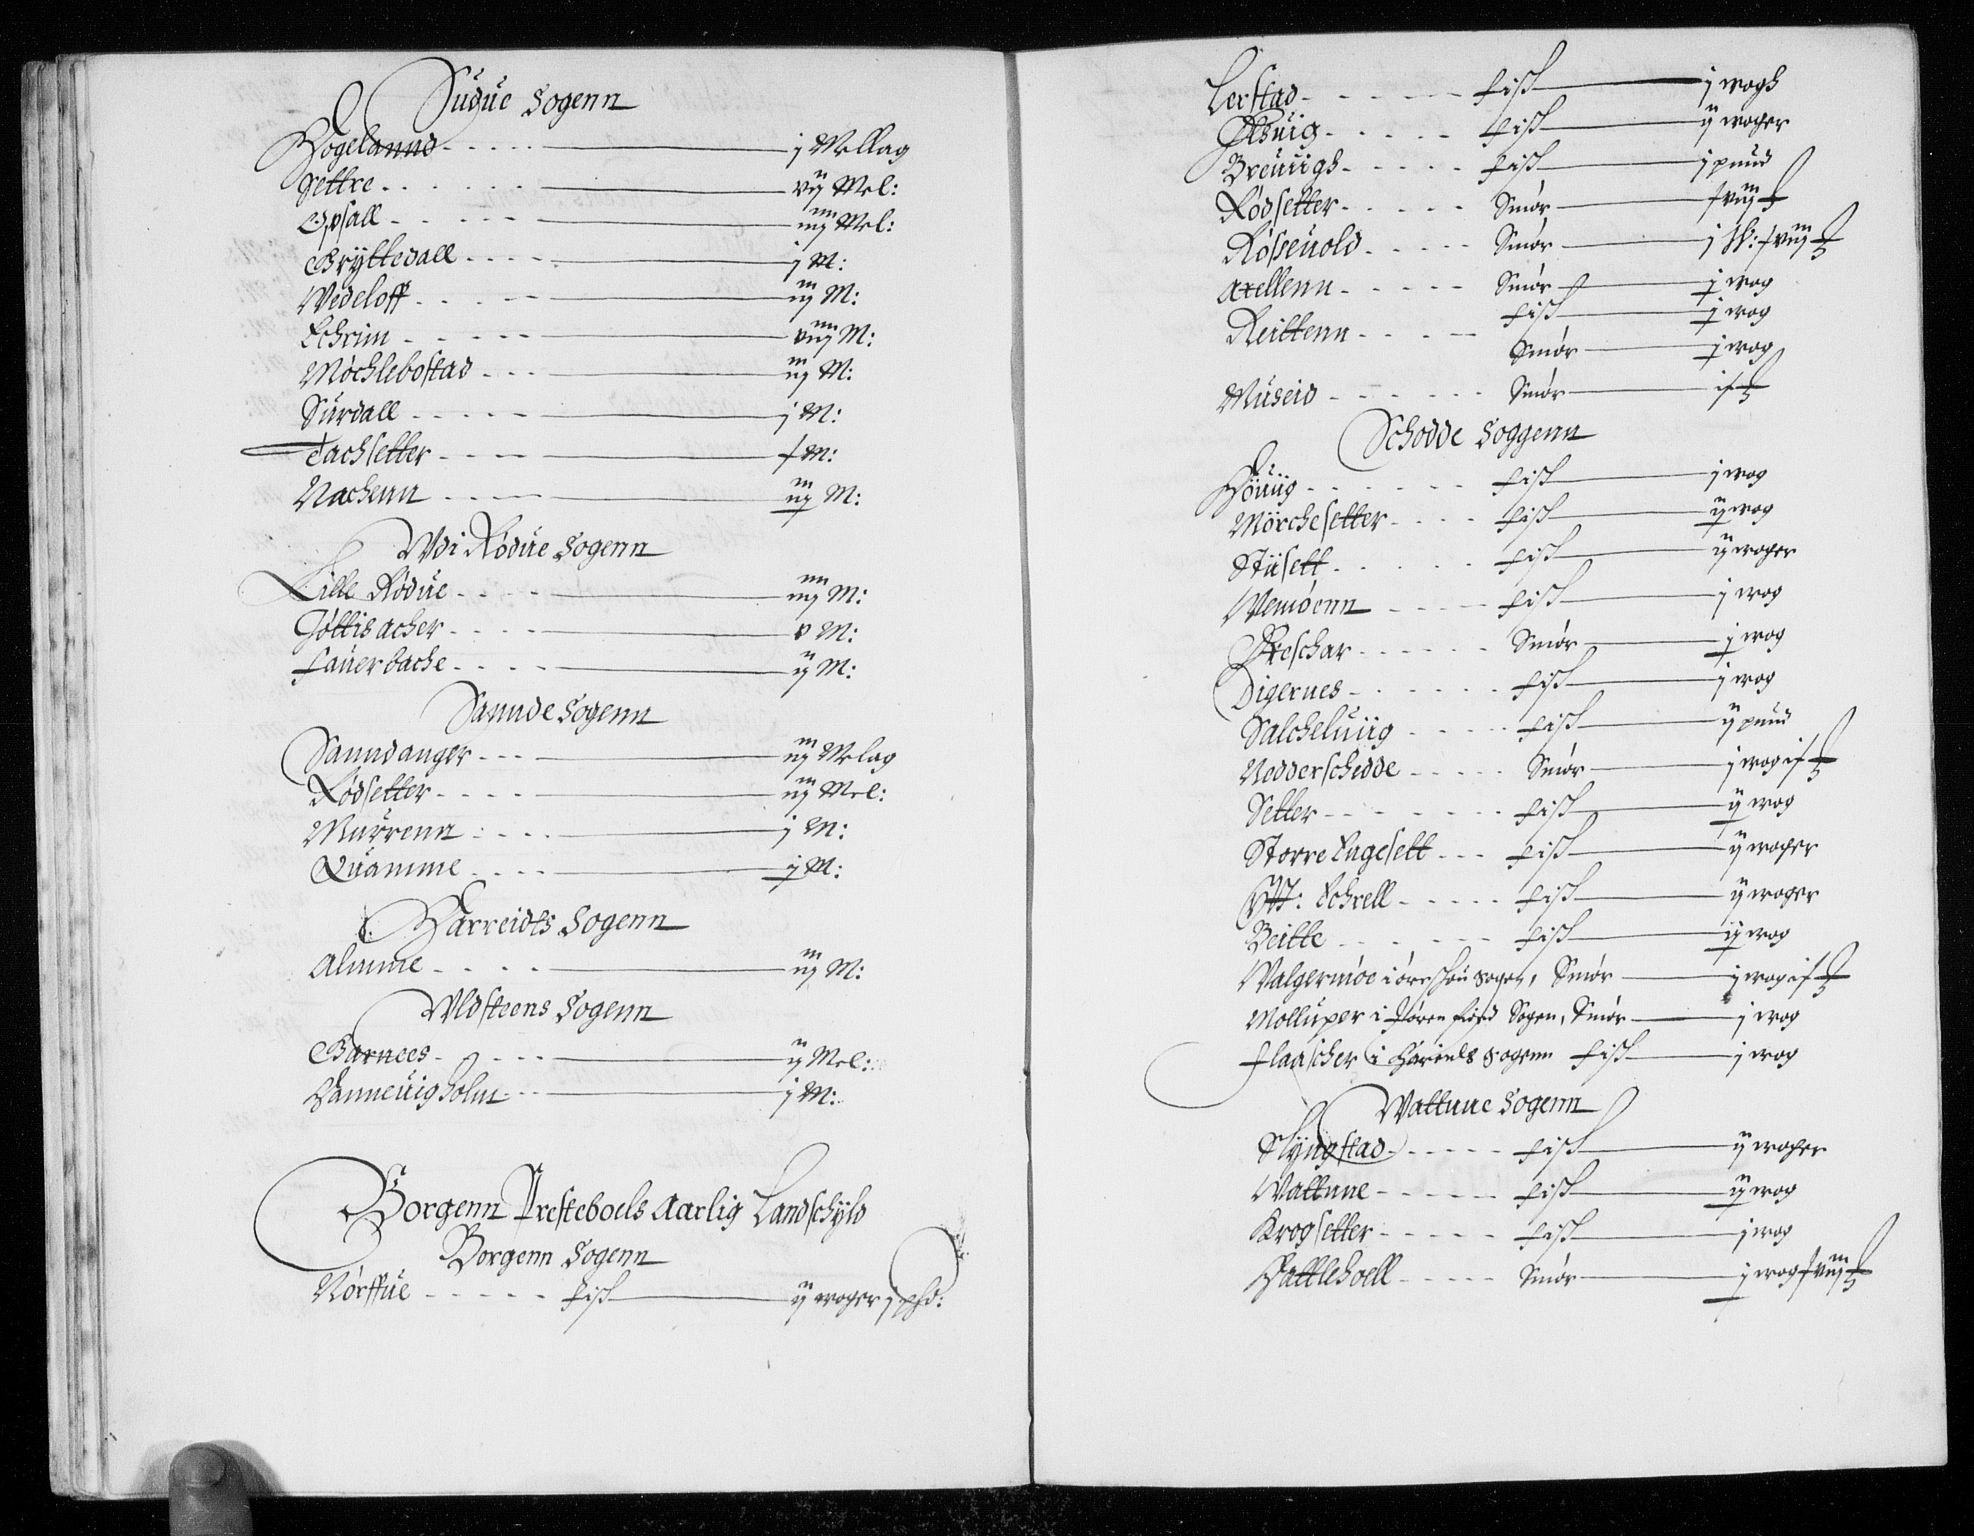 Sudue Sogenn
Hogelannd - - - - - j Mellag
Settre - - - - - vij Mel:
Opsall - - - - - iiij Mel:
Bryttedall - - - - j M:
Wedeloff - - - - - iij M:
Echrim - - - - - viij M:
Möchlebostad - - - iij M:
Surdall - - - - - j M:
Tachsetter - - - - M:
Nachenn - - - - iij M:
Wdi Rødue Sogenn
Lille Rødue - - - - iiij M:
Jøttis acher - - - - v M:
Fauerbache - - - - ij M:
Sannde Sogenn
Sanndanger - - - iij Melag
Rødsetter - - - - iij Mel:
Murrenn - - - - j M:
Quamme - - - - j M:
Harreidts Sogenn
Almme - - - - iij M:
Wldsteens Sogenn
Barnees - - - - ij Mel:
Hanneuigholm - - j M:
Borgenn Presteboels Aarlig Landschyld
Borgenn Sogenn
Nørffue - - - - - Fisk ij woger j pd:
Lerstad - - - - - Fisk j wogh
Olsuig - - - - - Fisk ij woger
Breuiigh - - - - - Fisk j pund
Rødsetter - - - - - Smør
Røsseuold - - - - - Smør
Axellenn - - - - - Smør j wog
Reittenn - - - - Fisk j wog
Smør j wog
Museid - - - - - - Smør
Schodde Soggenn
Höuiig - - - - - - Fisk j wog
Mörchesetter - - - - Fisk ij wog
Stüsett - - - - - Fisk ij woger
Wemöenn - - - - Fisk j wog
Freschar - - - - - Smør j wog
Digernes - - - - - Fisk j wog
Salcheluiig - - - - Fisk ij pund
Nedderschedde - - - - - Smør j wog
Setter - - - - - - Fisk ij wog
Storre Engesett - - - Fisk ij woger
Ytt: Echrell - - - - - Fisk ij woger
Beitte - - - - - - Fisk ij wog
Walgermöe i ørschou sogen, Smør j wog
Molluper i Hørenfiord Sogen, Smør j wog
Flaascher i Hariedts sogenn Fisk j wog
Wattnne Sogenn
Slyngstad - - - - - Fisk ij woger
Wattnne - - - - - Fisk ij wog
Krogsetter - - - - - Fisk j wog
Hattlehoell - - - - - Smør j wog